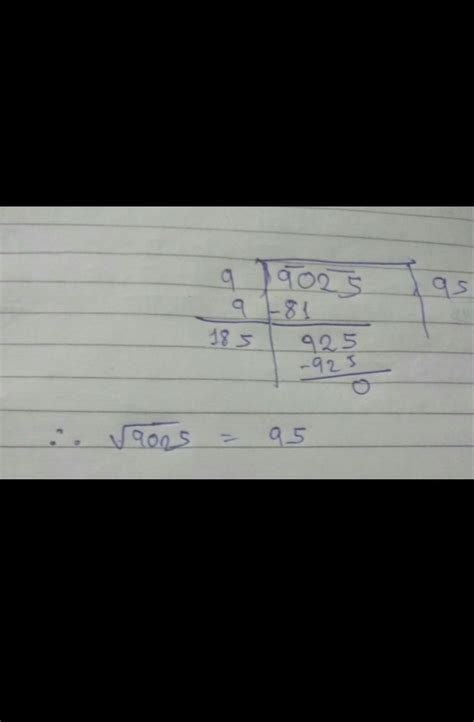 9 9025 95
9 -81
185 925
-925
0
∴ √9025 = 95